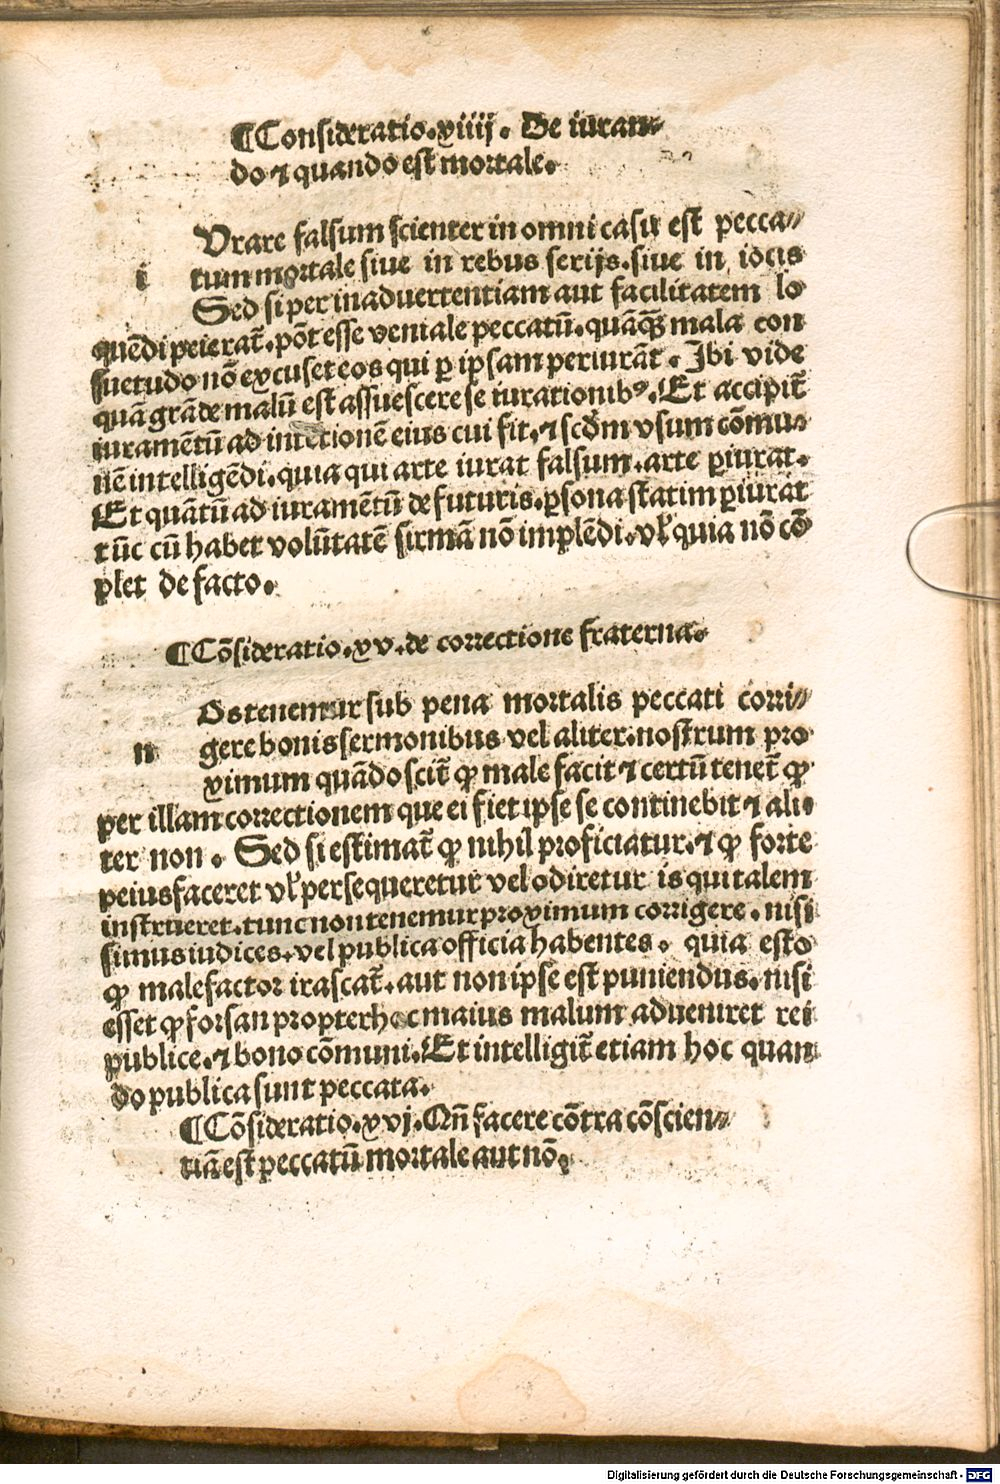 ¶Consideratio.xiiij. De iuran⸗
do ⁊ quando est mortale.
i Vrare falsum scienter in omni casu est pecca⸗
tum mortale siue in rebus serijs.siue in iocis
Sed si per inaduertentiam aut facilitatem lo
quēdi peierat̄.pōt esse veniale peccatū.quāqȝ mala con
suetudo nō excuset eos qui ꝑ ipsam periurāt. Ibi vide
quā grāde malū est assuescere se iurationibꝰ.Et accipit̄
iuramētū ad intētionē eius cui fit,⁊ scd̄m vsum cōmu⸗
nē intelligēdi.quia qui arte iurat falsum.arte ꝑiurat.
Et quātū ad iuramētū de futuris.ꝑsona statim ꝑiurat
tūc cū habet volūtatē firmā nō implēdi.vl̓ quia nō cō
plet de facto.
¶Cōsideratio.xv.de correctione fraterna.
n Os tenemur sub pena mortalis peccati corri⸗
gere bonis sermonibus vel aliter.nostrum pro
ximum quādo scit̄ ꝙ male facit ⁊ certū tenet̄ ꝙ
per illam correctionem que ei fiet ipse se continebit ⁊ ali⸗
ter non. Sed si estimat̄ ꝙ nihil proficiatur.⁊ ꝙ forte
peius faceret vl̓ persequeretur vel odiretur is qui talem
instrueret.tunc non tenemur proximum corrigere.nisi
simus iudices.vel publica officia habentes. quia esto
ꝙ malefactor irascat̄.aut non ipse est puniendus.nisi
esset ꝙ forsan propter hoc maius malum adueniret rei
publice.⁊ bono cōmuni.Et intelligit̄ etiam hoc quan
do publica sunt peccata.
¶Cōsideratio.xvj.Qn̄ facere cōtra cōscien⸗
tiā est peccatū mortale aut nō.
Digitalisierung gefördert durch die Deutsche Forschungsgemeinschaft - DFG